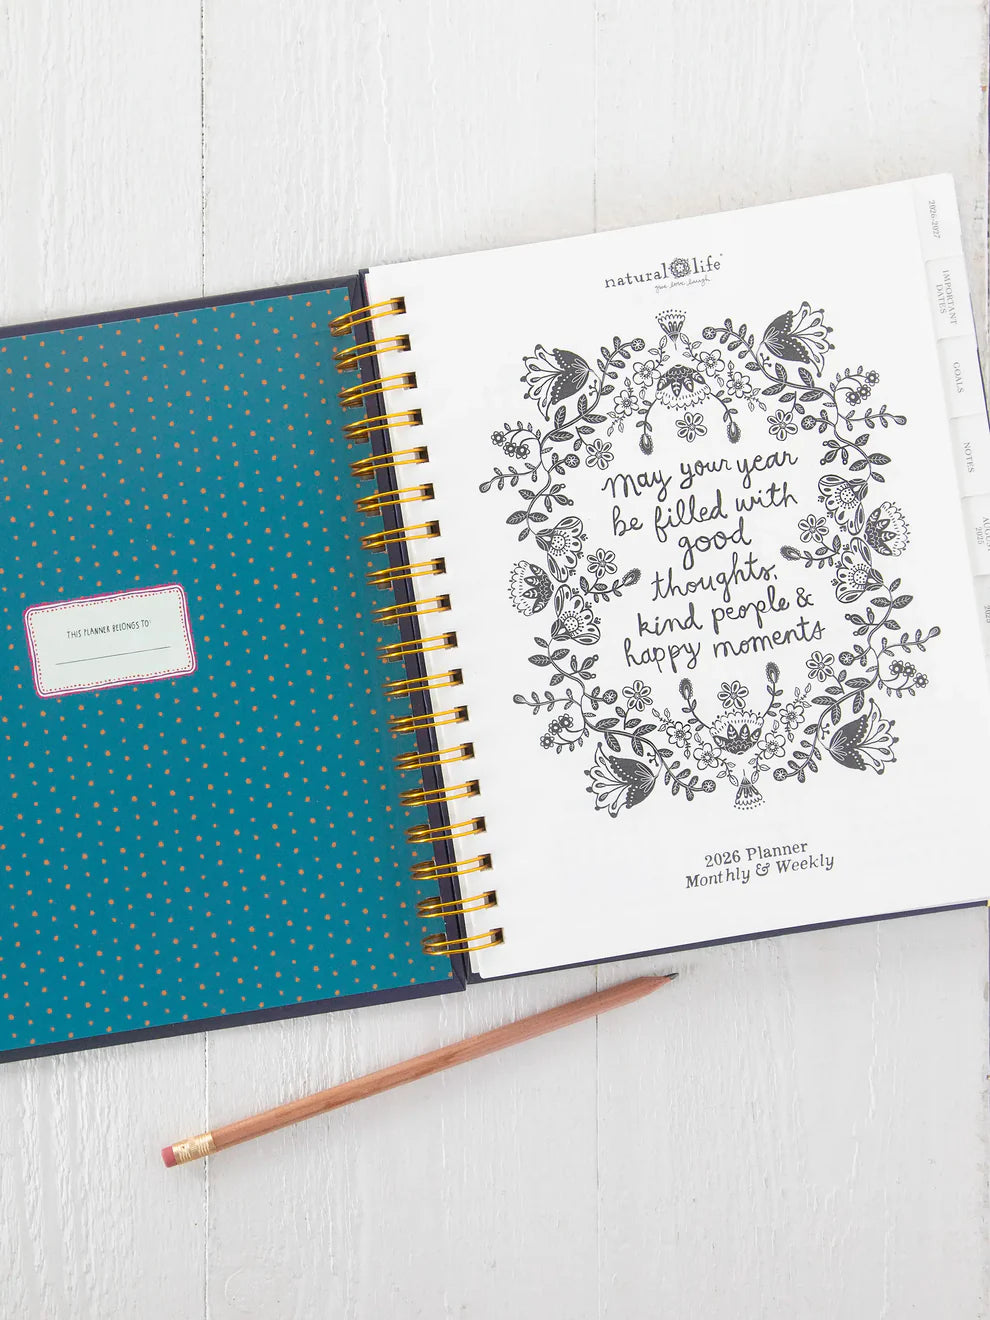 THIS PLANNER BELONGS TO:
natural life
give love laugh
May your year
be filled with
good
thoughts,
kind people &
happy moments
2026 Planner
Monthly & Weekly
2026-2027
IMPORTANT
DATES
GOALS
NOTES
2025